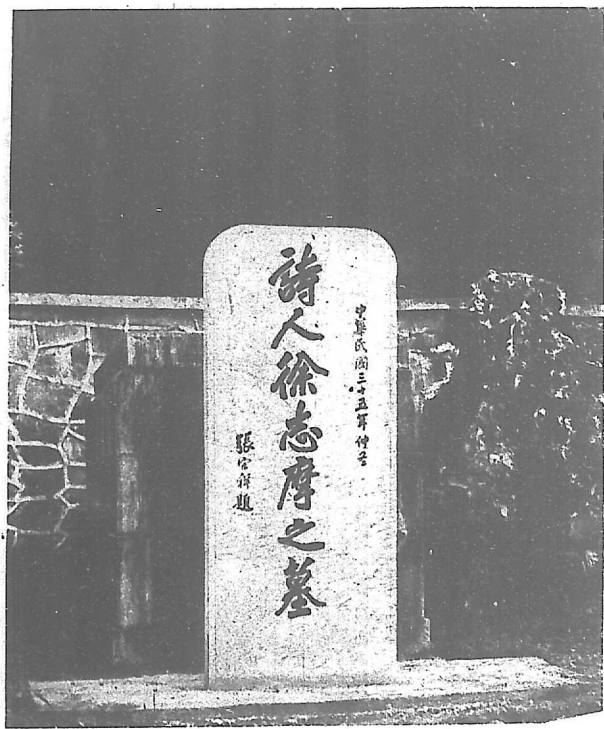 中華民國三十五年仲冬
詩人徐志摩之墓
張宗祥題